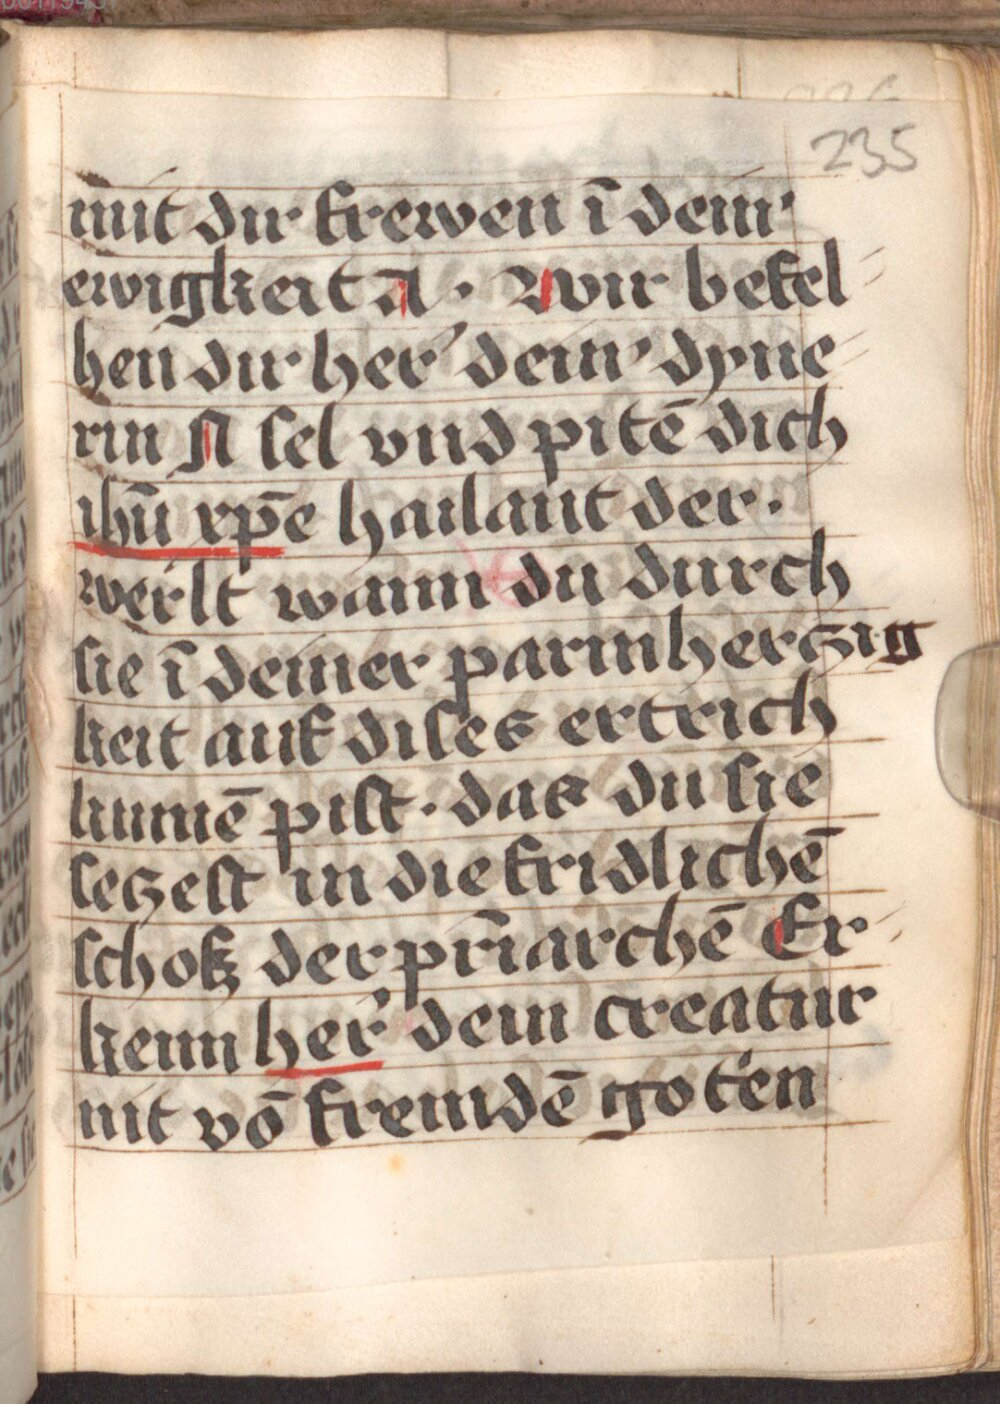 235
mit dir frewen ī dein᾽
ewigkeit A · Wir befel
hen dir her᾽ dein᾽ dyne
rin N sel vnd pitē dich
ihū xpē hailant der ·
werlt wann du durch
sie ī deiner parmherczig
keit auf dises ertrich
kumē pist · das du sie
seczest in die fridlichē
schoß der pr̄iarchē Er
kenn her᾽ dein creatur
nit vō fremdē goten